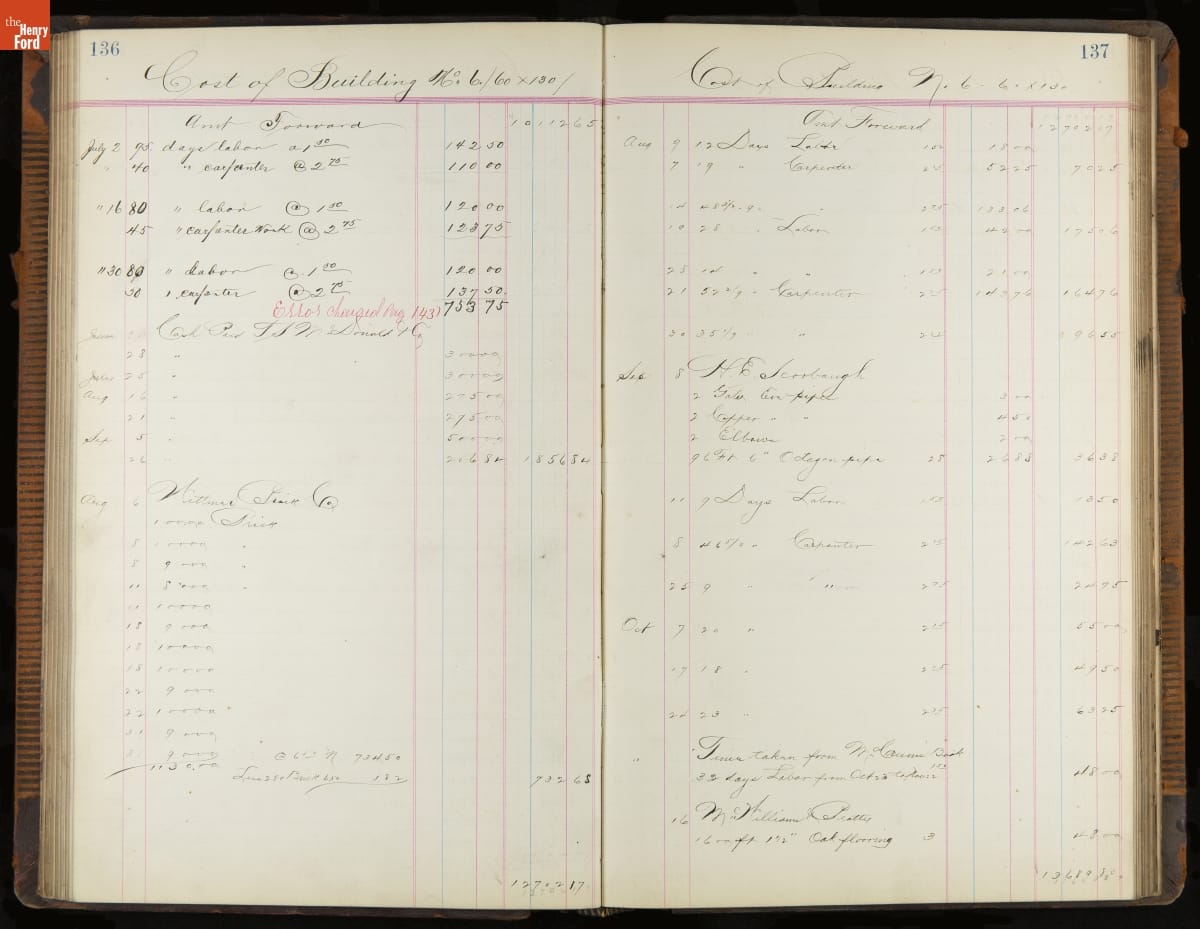 the Henry Ford
136
Cost of Building No. 6 / 60 x 130 /
Amt Forward 10112 65
July 2 95 days labor @ 1 50 142 50
" 40 " carpenter @ 2 75 110 00
" 16 80 " labor @ 1 50 120 00
45 " carpenter Work @ 2 75 123 75
" 30 80 " labor @ 1 50 120 00
50 " carpenter @ 2 75 137 50
Error charged Pag 143) 753 75
Cash Paid McDonald & Co
28 " 300 00
25 " 300 00
Aug 16 " 275 00
21 " 275 00
Sep 5 " 500 00
26 " 206 84 1856 84
Aug 6 Brick Co
10000 Brick
8 10000 "
8 9000 "
11 8000 "
11 10000
18 9000
18 10000
18 10000
22 9000
22 10000
31 9000
31 9000
113000 @ 6 50 M 734 50
Less 280 Brick 6 50 1 82 732 68
12702 17
137
Cost of Building No. 6 - 60 x 130
Amt Forward 12702 17
Aug 9 12 Days Labor 150 18 00
7 19 " Carpenter 275 52 25 70 25
14 48 " 275 133 06
10 28 " Labor 150 42 00 175 06
28 14 " " 150 21 00
21 52 " Carpenter 275 143 76 164 76
30 35 " " 96 55
Sep 8 H. E. Scorbaugh
2 Galv Eve pipes 3 00
2 Copper " " 4 50
2 Elbows 2 00
96 Ft 6" Octagon pipe 28 26 88 36 38
11 9 Days Labor 150 13 50
8 " Carpenter 275 142 63
25 9 " " 275 24 95
Oct 7 20 " 275 55 00
17 18 " 275 49 50
24 23 " 275 63 25
" Time taken from Book
32 days Labor from Oct 150 48 00
16 McWilliams
1600 ft 1 1/2" Oak flooring 3 48 00
13689 88